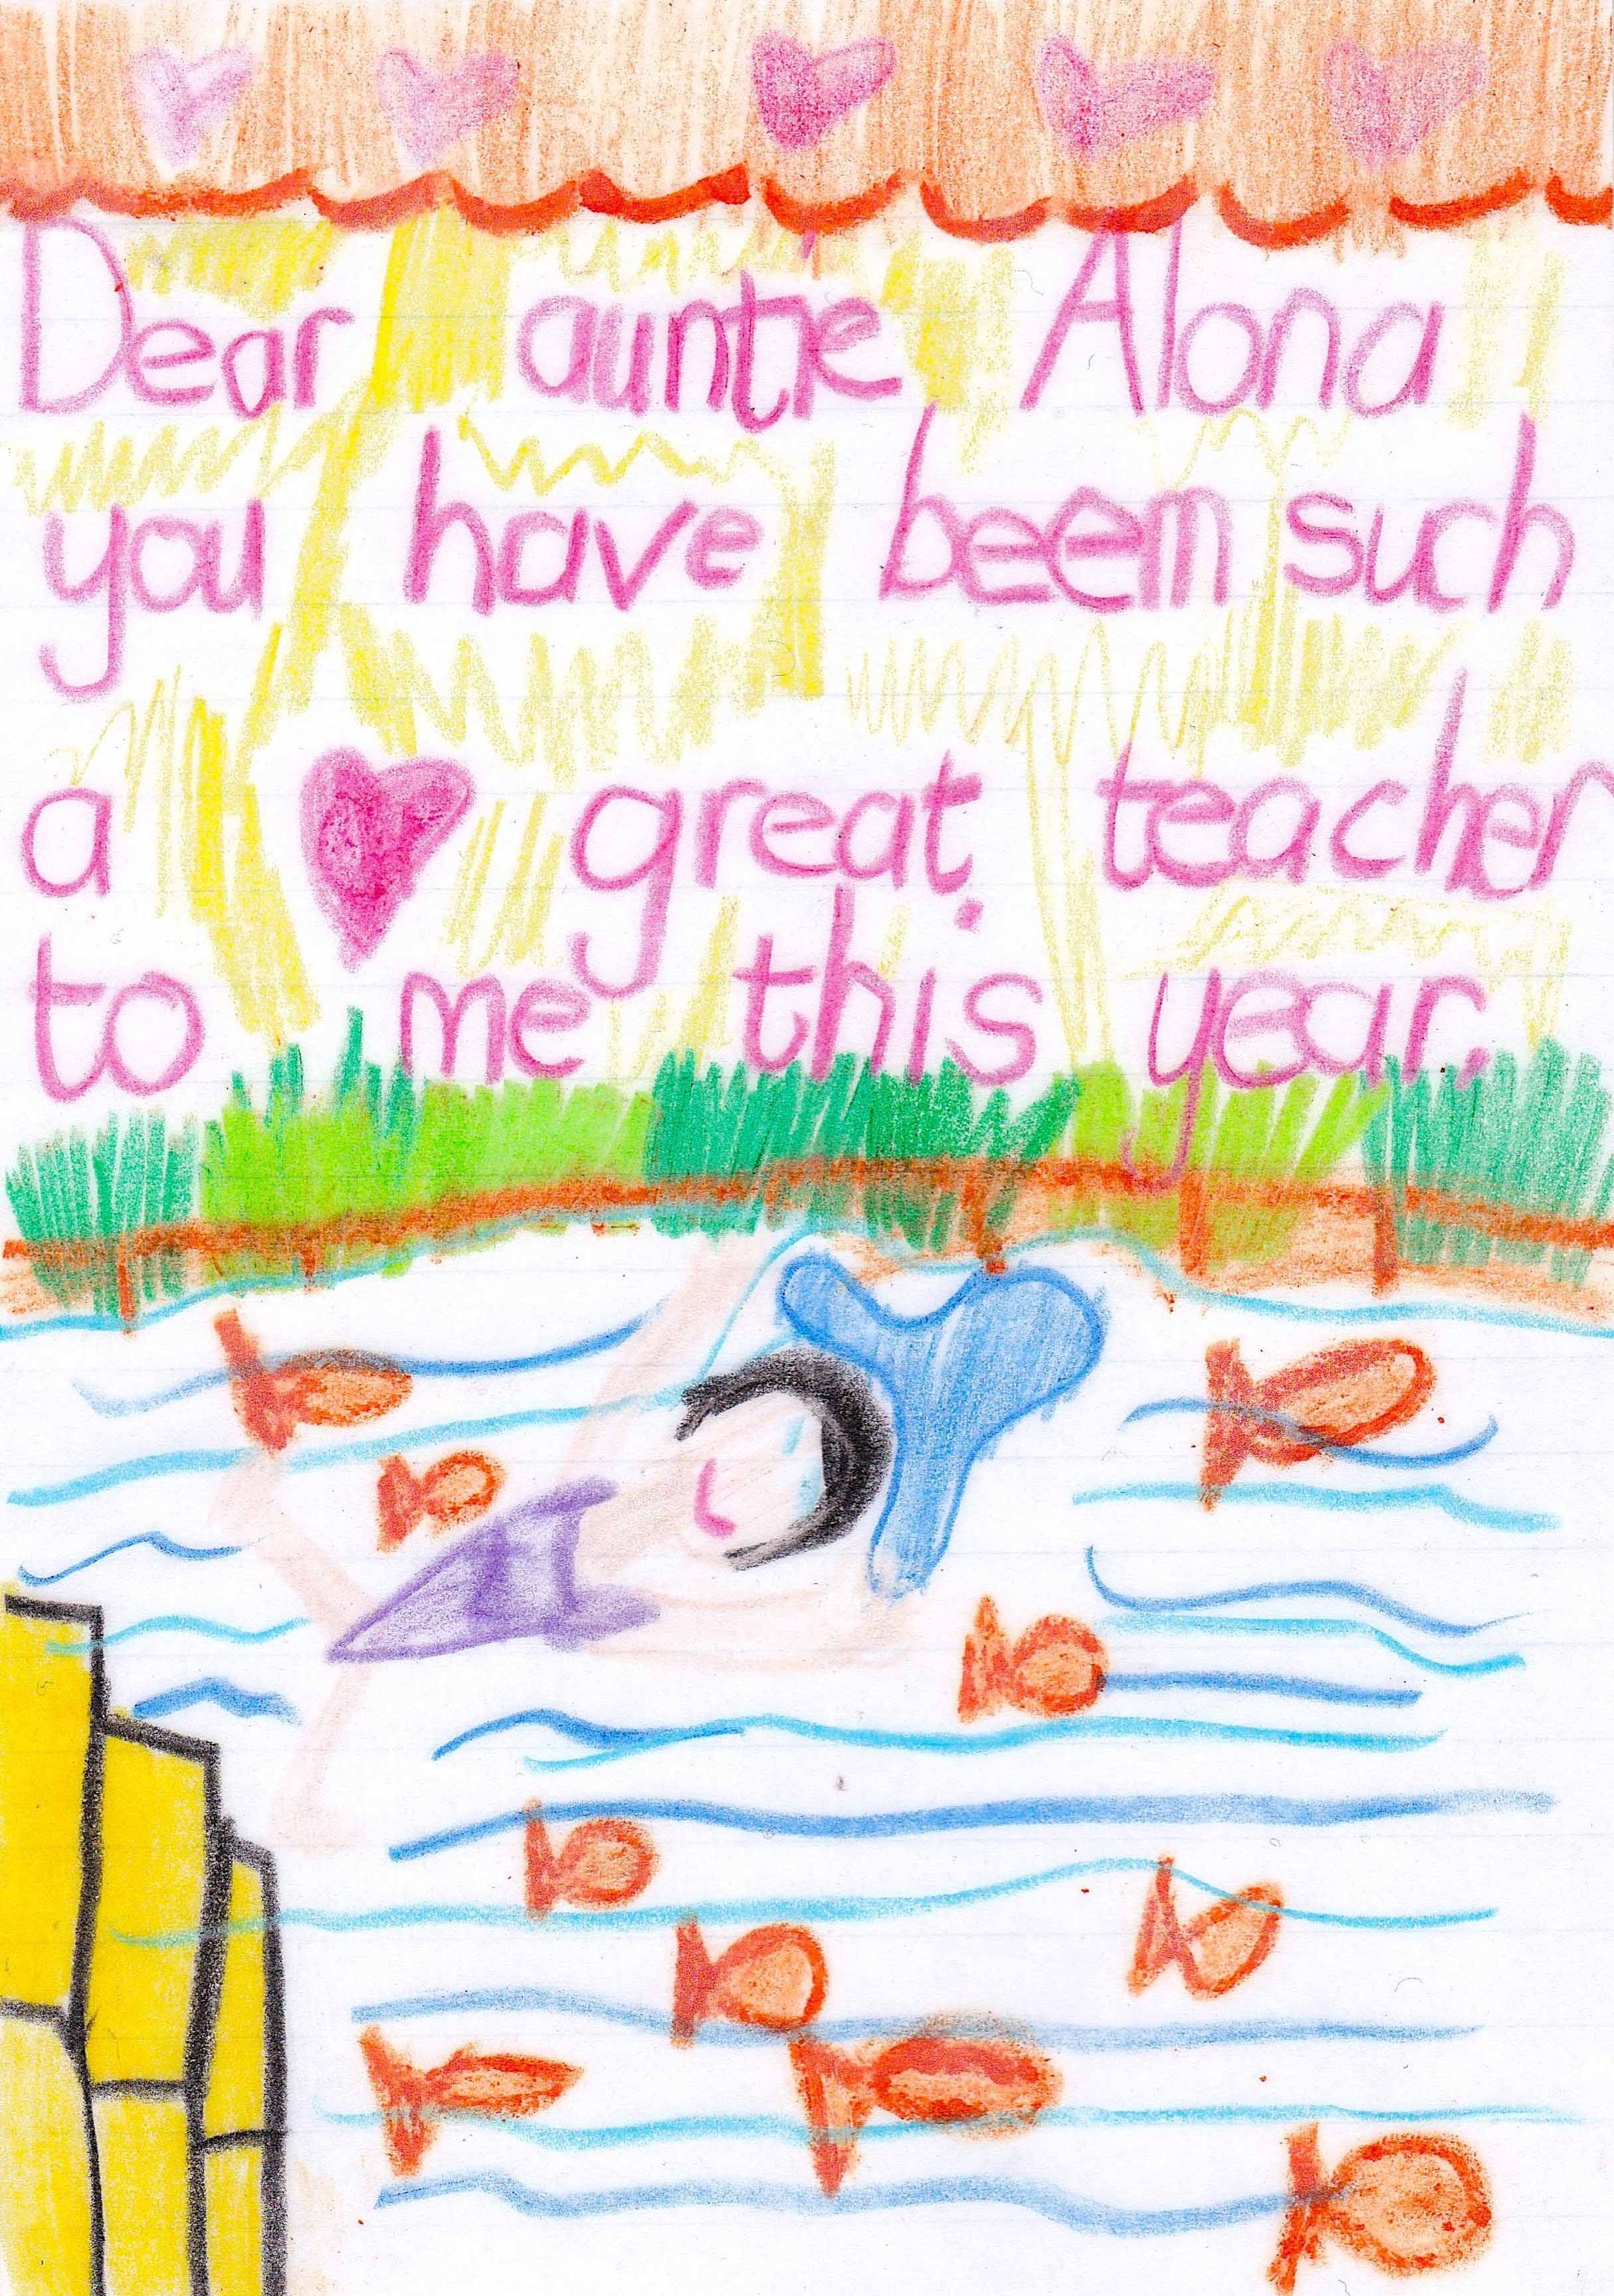 Dear auntie Alona
you have beem such
a great teacher
to me this year.